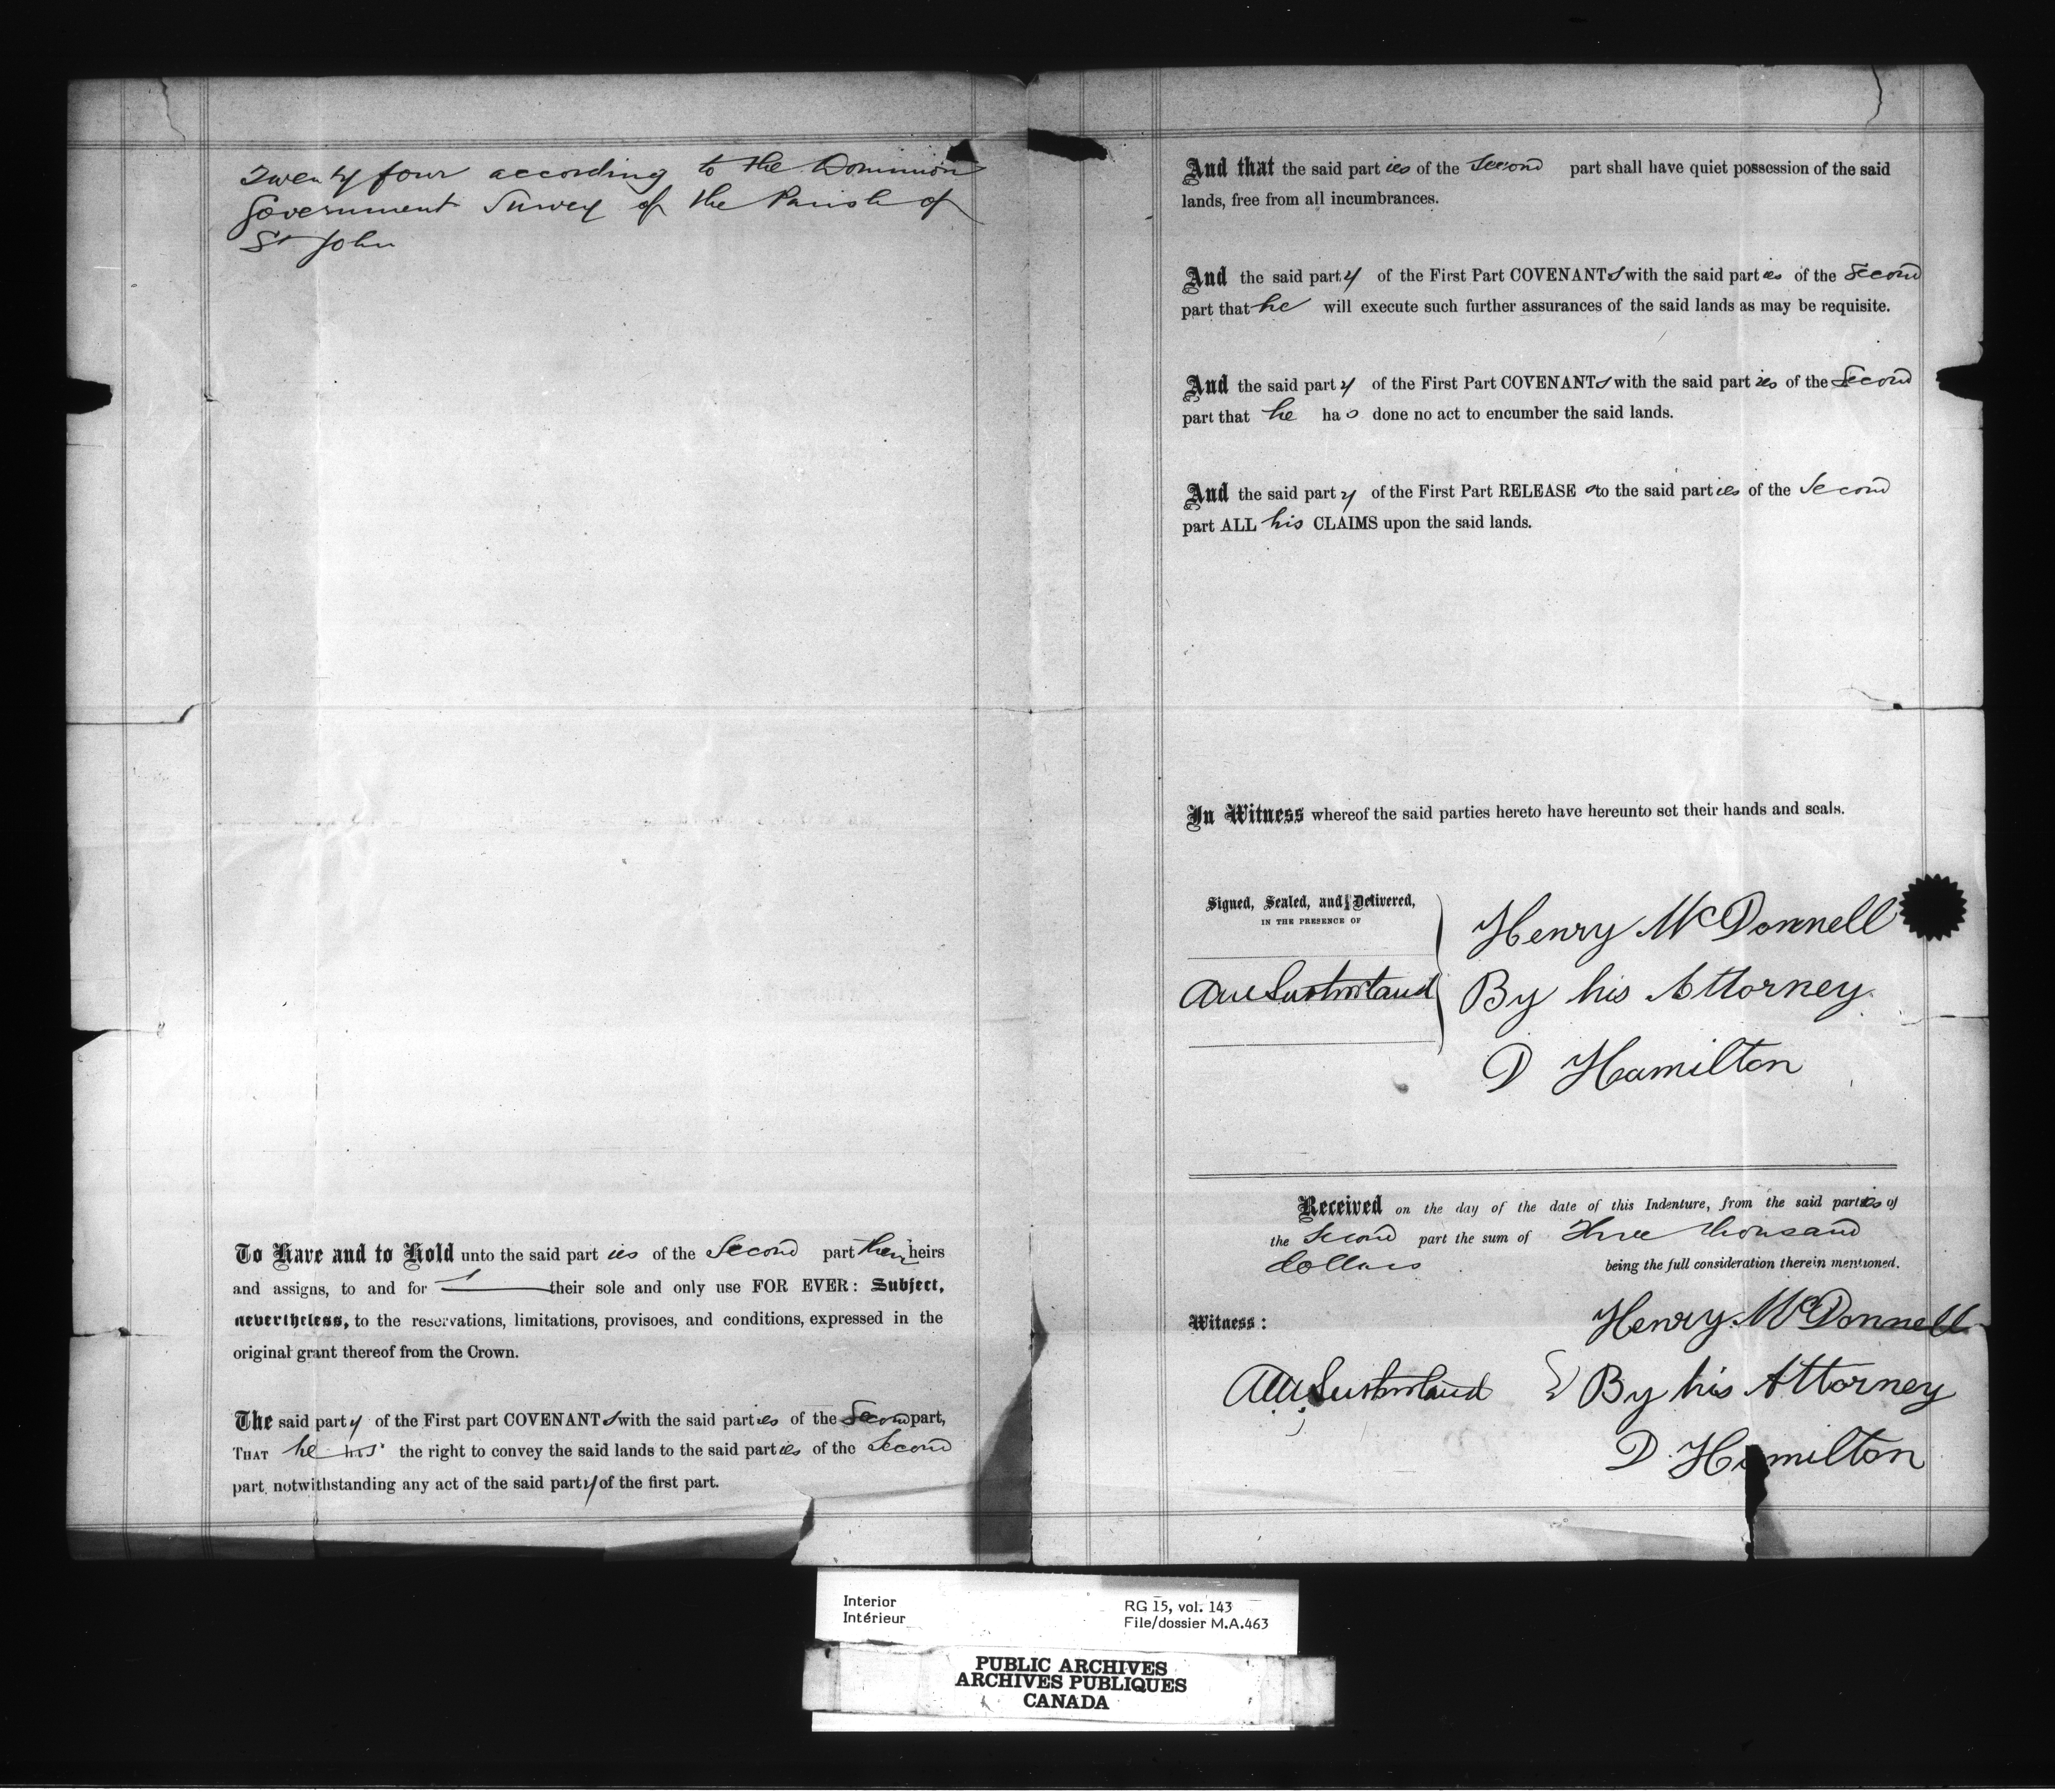 Twenty four according to the Dominion
Government Survey of the Parish of
St John
To Have and to Hold unto the said parties of the Second part their heirs
and assigns, to and for their sole and only use FOR EVER: Subject,
nevertheless, to the reservations, limitations, provisoes, and conditions, expressed in the
original grant thereof from the Crown.
The said party of the First part COVENANTs with the said parties of the Second part,
THAT he has the right to convey the said lands to the said parties of the Second
part, notwithstanding any act of the said party of the first part.
And that the said parties of the Second part shall have quiet possession of the said
lands, free from all incumbrances.
And the said party of the First Part COVENANTs with the said parties of the Second
part that he will execute such further assurances of the said lands as may be requisite.
And the said party of the First Part COVENANTs with the said parties of the Second
part that he has done no act to encumber the said lands.
And the said party of the First Part RELEASEs to the said parties of the Second
part ALL his CLAIMS upon the said lands.
In Witness whereof the said parties hereto have hereunto set their hands and seals.
Signed, Sealed, and Delivered,
IN THE PRESENCE OF
Sutherland
Henry McDonnell
By his Attorney
D Hamilton
Received on the day of the date of this Indenture, from the said parties of
the Second part the sum of Three thousand
dollars being the full consideration therein mentioned.
Witness:
Sutherland
Henry McDonnell
By his Attorney
D. Hamilton
Interior
Intérieur
RG 15, vol. 143
File/dossier M.A.463
PUBLIC ARCHIVES
ARCHIVES PUBLIQUES
CANADA